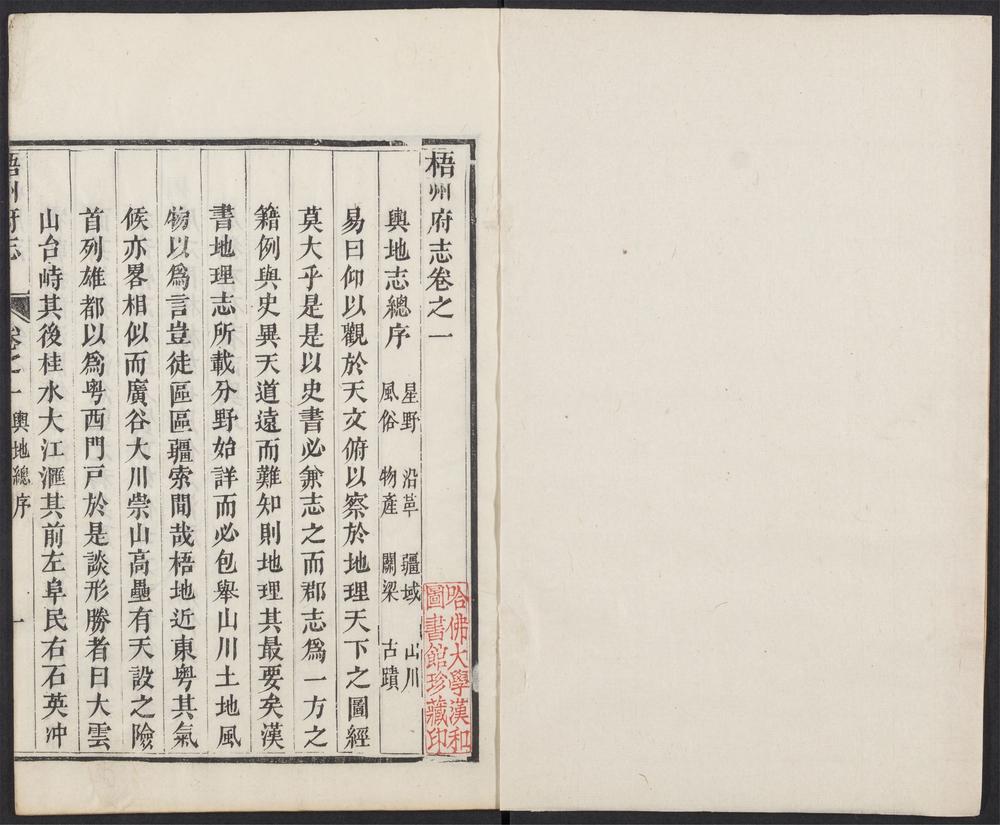 梧州府志卷之一
輿地志總序 星野 沿革 疆域 山川
風俗 物產 關梁 古蹟
易曰仰以觀於天文俯以察於地理天下之圖經
莫大乎是是以史書必兼志之而郡志爲一方之
籍例與史異天道遠而難知則地理其最要矣漢
書地理志所載分野始詳而必包舉山川土地風
物以爲言豈徒區區疆索間哉梧地近東粵其氣
候亦畧相似而廣谷大川崇山高壘有天設之險
首列雄都以爲粵西門戸於是談形勝者曰大雲
山台峙其後桂水大江滙其前左阜民右石英冲
梧州府志 卷之一 輿地總序 一
哈佛大學漢和
圖書館珍藏印